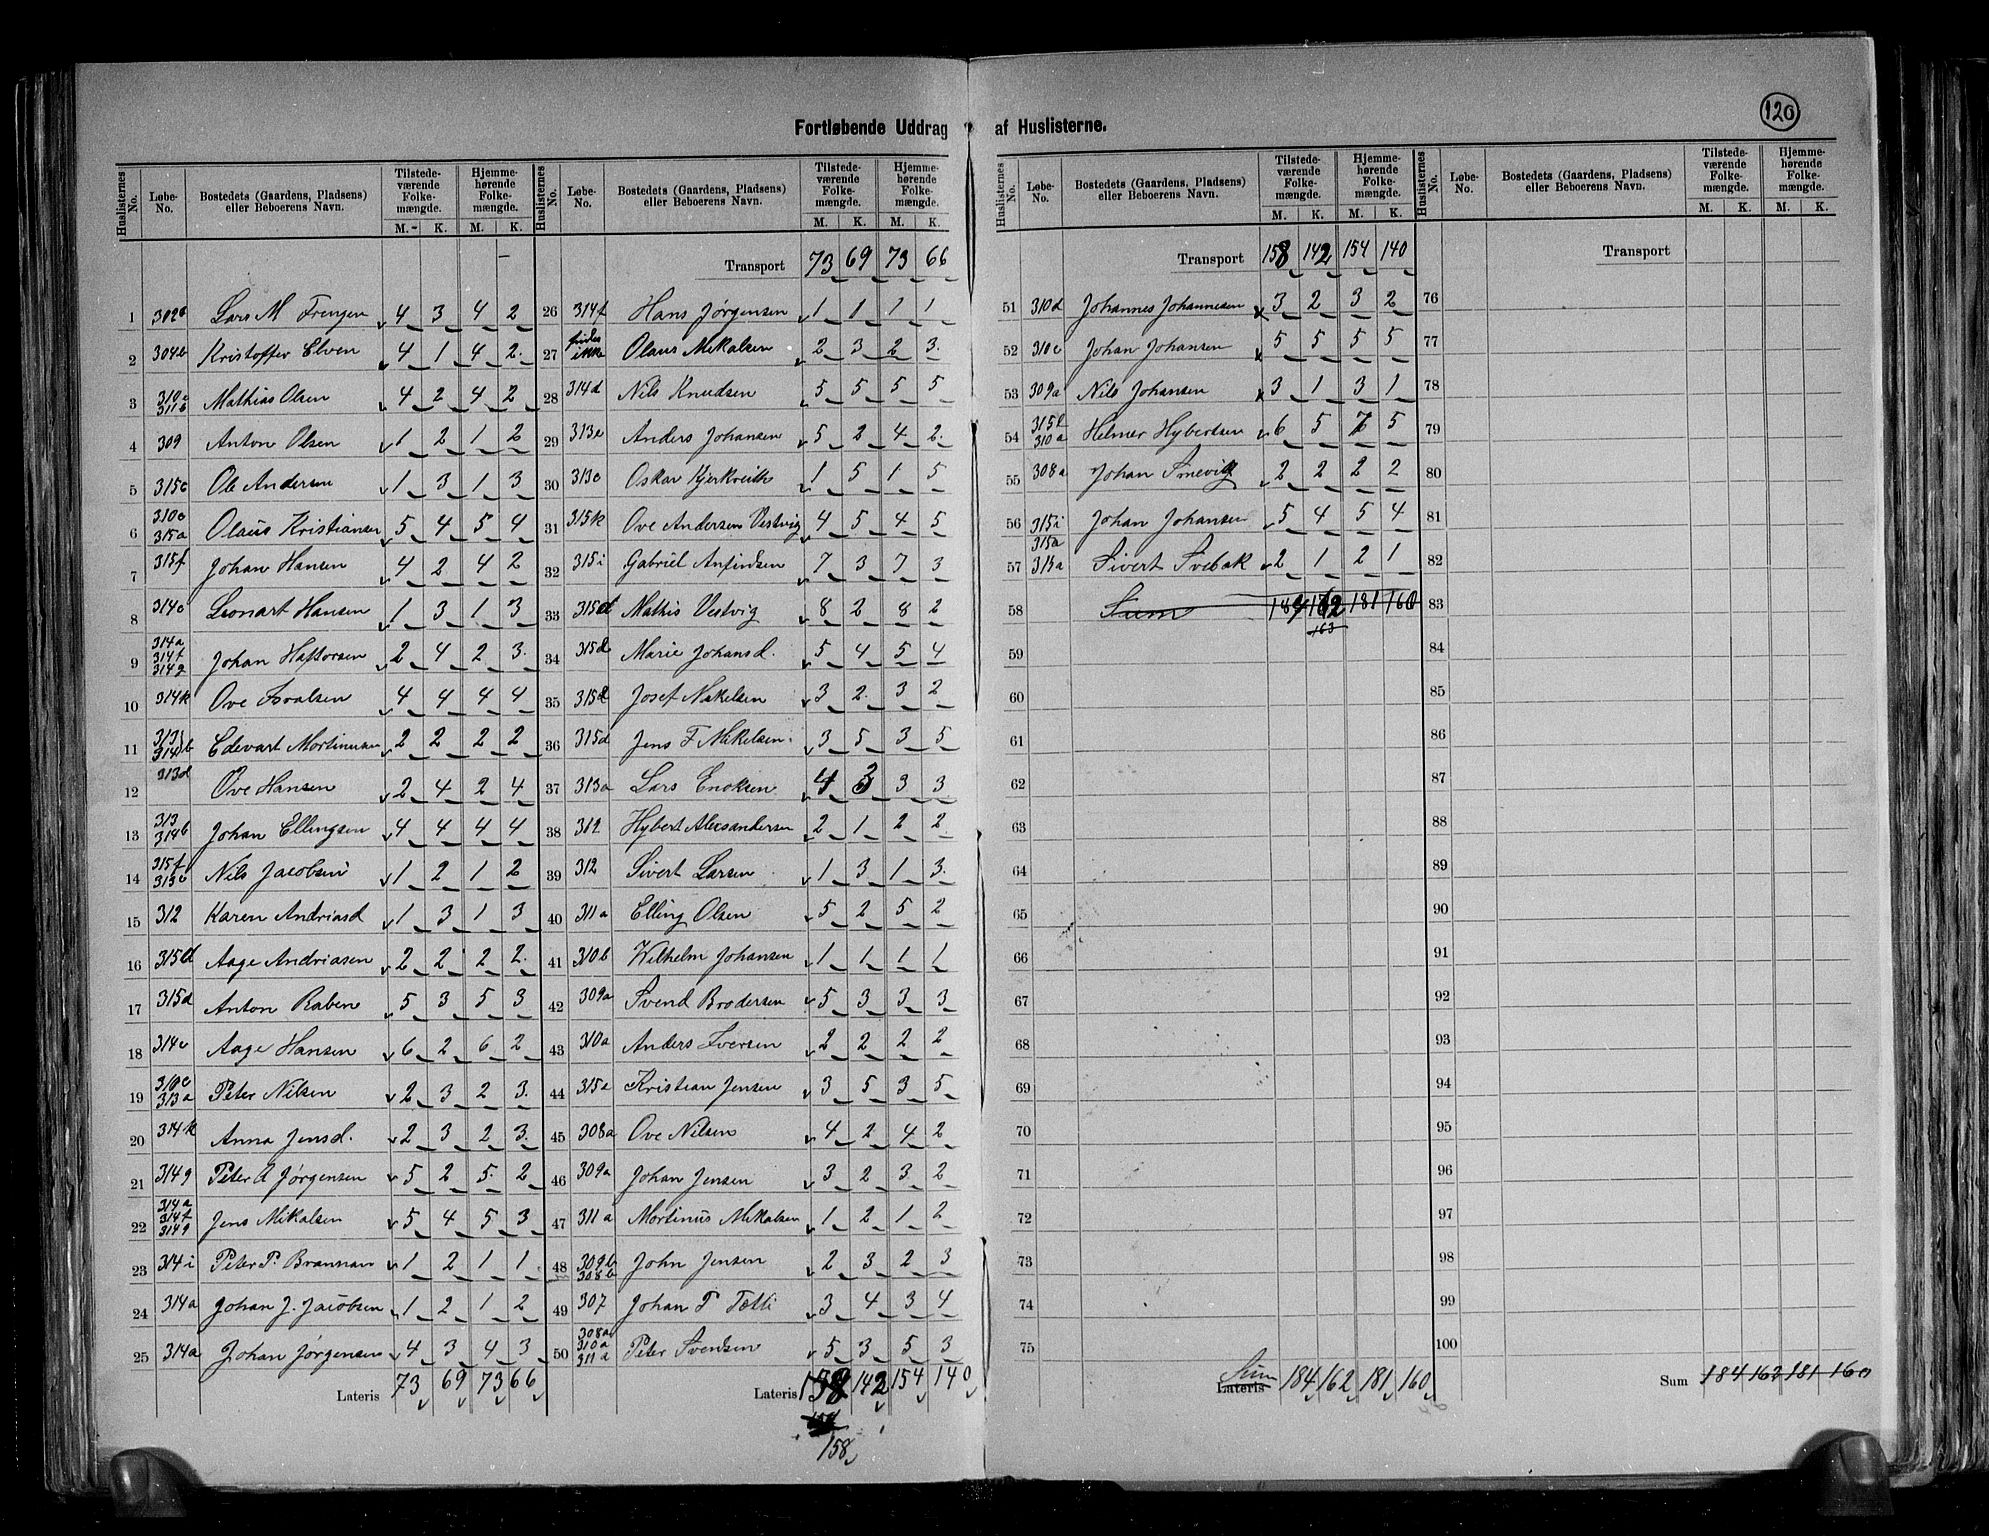 120
Fortløbende Uddrag af Huslisterne.
Huslisternes No. Løbe-No. Bostedets (Gaardens, Pladsens) eller Beboerens Navn. Tilstedeværende Folkemængde. M. K. Hjemmehørende Folkemængde. M. K.
1 302 Lars M Frengen 4 3 4 2
2 304b Kristoffer Elven 4 1 4 2
3 310c 311b Mathias Olsen 4 2 4 2
4 309 Anton Olsen 1 2 1 2
5 315c Ole Andersen 1 3 1 3
6 310c 315a Olaus Kristiansen 5 4 5 4
7 315f Johan Hansen 4 2 4 2
8 314c Leonart Hansen 1 3 1 3
9 314a 314f 314g Johan Haftorsen 2 4 2 3
10 314k Ove Ivralsen 4 4 4 4
11 313 314b Edevart Mortinusen 2 2 2 2
12 313d Ove Hansen 2 4 2 4
13 313 314b Johan Ellingsen 4 4 4 4
14 315f 313c Nils Jacobsen 1 2 1 2
15 312 Karen Andriasd 1 3 1 3
16 315d Aage Andriasen 2 2 2 2
17 315d Anton Raben 5 3 5 3
18 314c Aage Hansen 6 2 6 2
19 310c 313a Peter Nilsen 2 3 2 3
20 314k Anna Jensd. 2 3 2 3
21 314g Peter A Jørgensen 5 2 5 2
22 314a 314f 314g Jens Mikalsen 5 4 5 3
23 314i Peter P. Brannan 1 2 1 1
24 314a Johan J. Jacobsen 1 2 1 2
25 314a Johan Jørgensen 4 3 4 3
Lateris 73 69 73 66
Huslisternes No. Løbe-No. Bostedets (Gaardens, Pladsens) eller Beboerens Navn. Tilstedeværende Folkemængde. M. K. Hjemmehørende Folkemængde. M. K.
Transport 73 69 73 66
26 314f Hans Jørgensen 1 1 1 1
27 findes ikke Olaus Mikalsen 2 3 2 3
28 314d Nils Knudsen 5 5 5 5
29 313e Anders Johansen 5 2 4 2
30 313c Oskar Kjerkreith 1 5 1 5
31 315k Ove Andersen Vestvig 4 5 4 5
32 315i Gabriel Anfindsen 7 3 7 3
33 315d Mathis Vestvig 8 2 8 2
34 315d Marie Johansd. 5 4 5 4
35 315d Josef Mikelsen 3 2 3 2
36 315d Jens F Mikelsen 3 5 3 5
37 313a Lars Enoksen 4 3 3 3
38 312 Hybert Alexsandersen 2 1 2 2
39 312 Sivert Larsen 1 3 1 3
40 311a Elling Olsen 5 2 5 2
41 310b Wilhelm Johansen 1 1 1 1
42 309a Svend Brodersen 5 3 3 3
43 310a Anders Iversen 2 2 2 2
44 315a Kristian Jensen 3 5 3 5
45 308a Ove Nilsen 4 2 4 2
46 309a Johan Jensen 3 2 3 2
47 311a Mortinus Mikalsen 1 2 1 2
48 309b 308b John Jensen 2 3 2 3
49 307 Johan P Tetli 3 4 3 4
50 308a 310a 311a Peter Svendsen 5 3 5 3
Lateris 158 142 154 140
158
Huslisternes No. Løbe-No. Bostedets (Gaardens, Pladsens) eller Beboerens Navn. Tilstedeværende Folkemængde. M. K. Hjemmehørende Folkemængde. M. K.
Transport 158 142 154 140
51 310d Johannes Johannesen 3 2 3 2
52 310c Johan Johansen 5 5 5 5
53 309a Nils Johansen 3 1 3 1
54 315l 310a Helmer Hybertsen 6 5 7 5
55 308a Johan Smevig 2 2 2 2
56 315i Johan Johansen 5 4 5 4
57 315a 313a Sivert Svebak 2 1 2 1
58 Sum 184 162 181 160
163
59
60
61
62
63
64
65
66
67
68
69
70
71
72
73
74
75
Sum
Lateris 184 162 181 160
Huslisternes No. Løbe-No. Bostedets (Gaardens, Pladsens) eller Beboerens Navn. Tilstedeværende Folkemængde. M. K. Hjemmehørende Folkemængde. M. K.
Transport
76
77
78
79
80
81
82
83
84
85
86
87
88
89
90
91
92
93
94
95
96
97
98
99
100
Sum 184 162 181 160